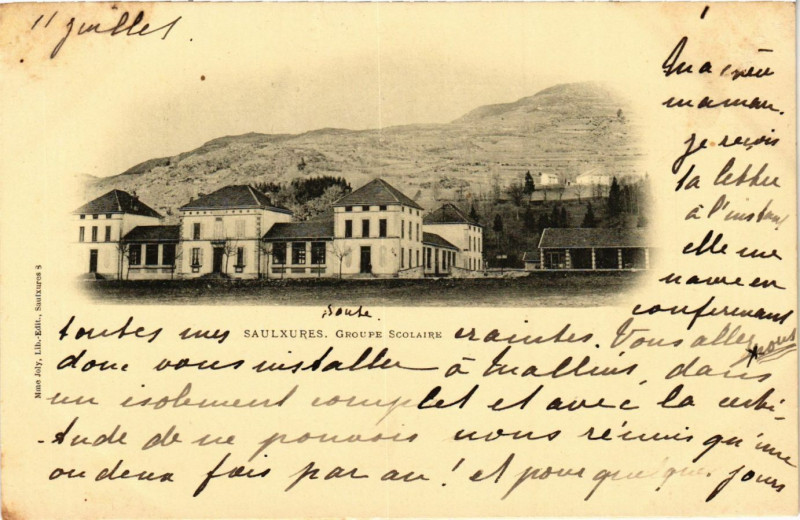 11 juillet
Ma chère
maman.
je reçois
ta lettre
à l'instant
elle me
navre en
confirmant
toutes mes craintes. Vous allez
donc vous installer à dans
un isolement complet et avec la certi-
-tude de ne pouvoir nous réunir qu'une
ou deux fois par an! et pour quelques jours
SAULXURES. GROUPE SCOLAIRE
Mme Joly, Lib.-Edit., Saulxures S